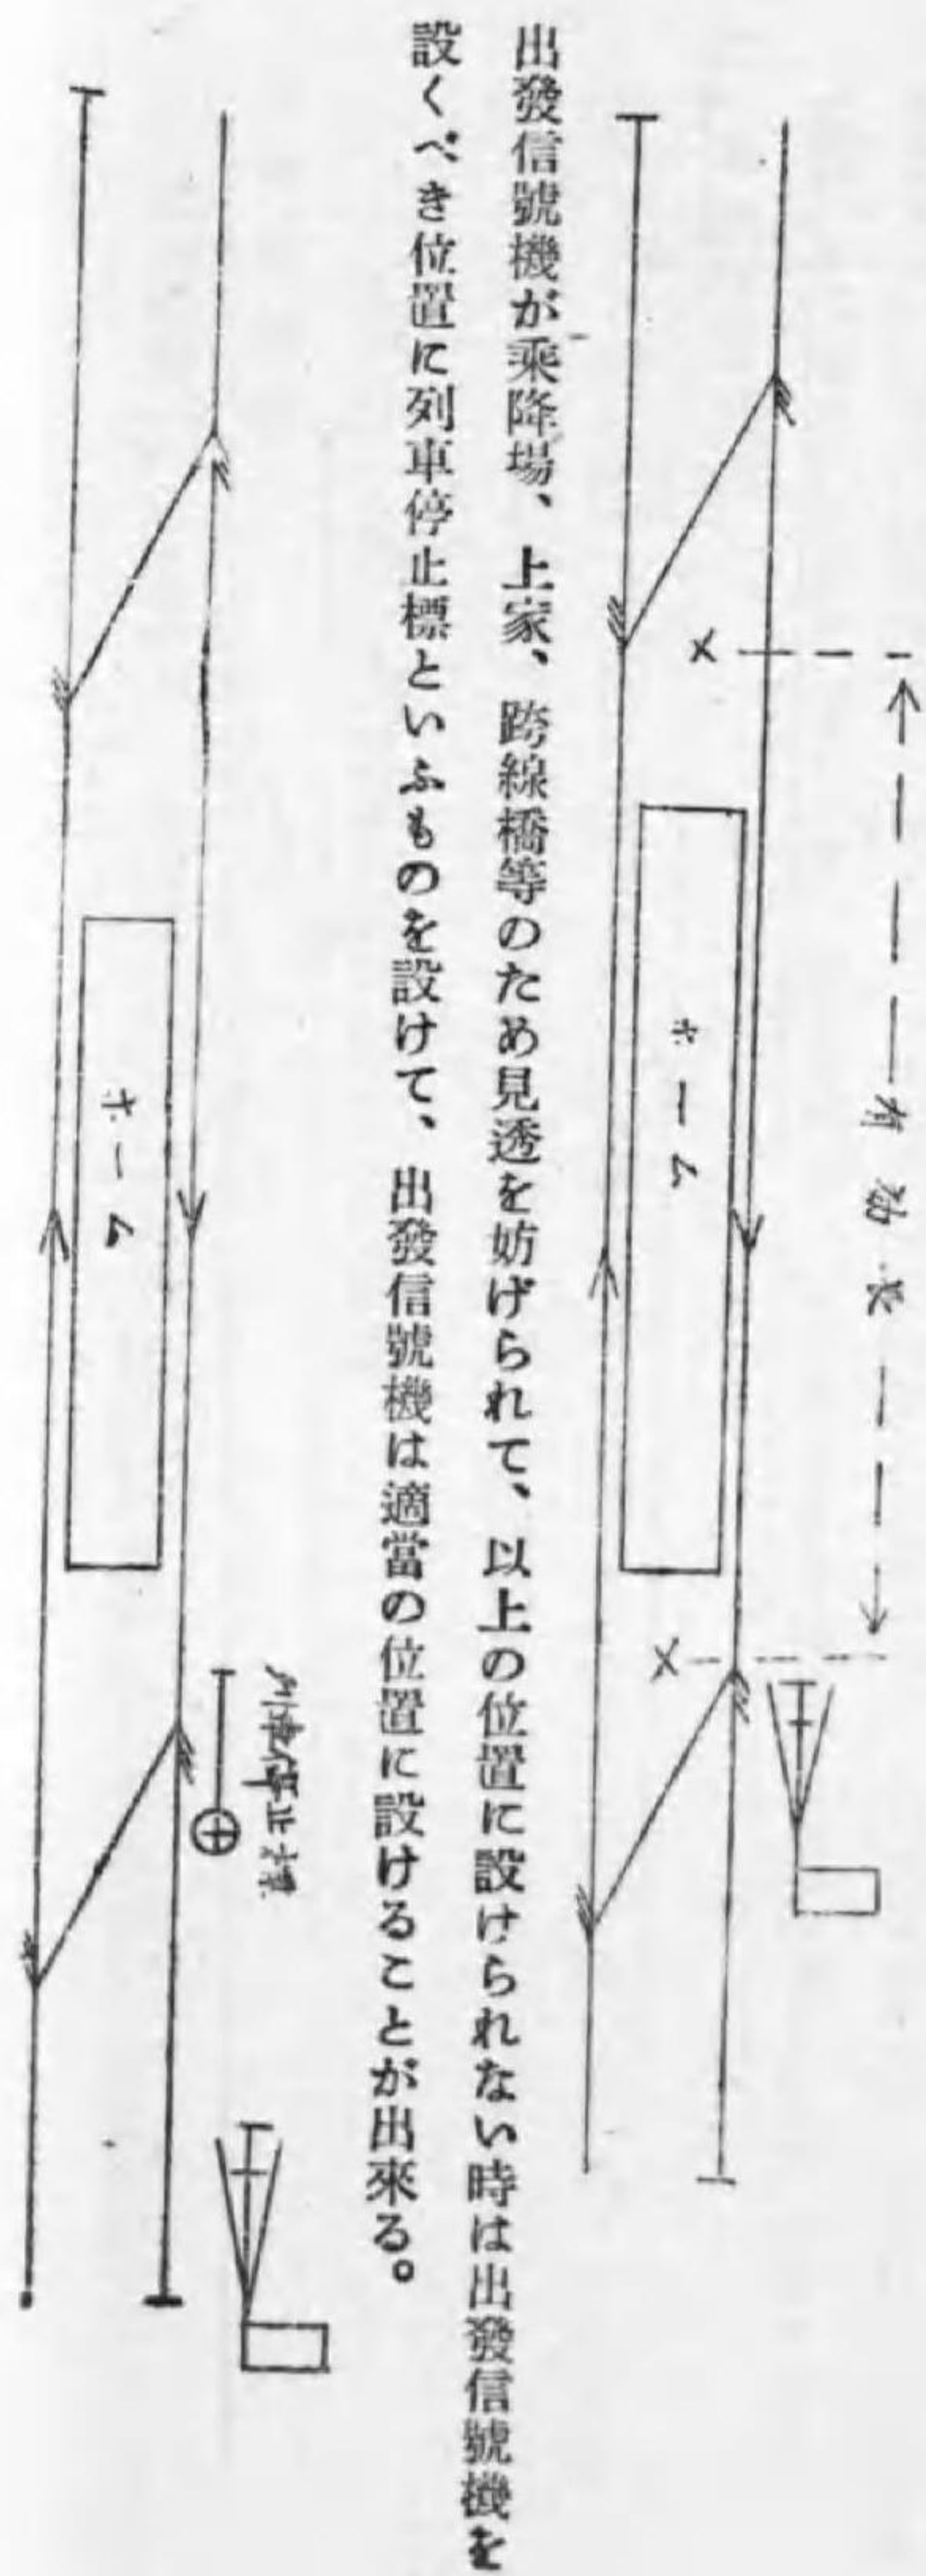 有効長
ホーム
出發信號機が乘降場、上家、跨線橋等のため見透を妨げられて、以上の位置に設けられない時は出發信號機を
設くべき位置に列車停止標といふものを設けて、出發信號機は適當の位置に設けることが出來る。
列車停止標
ホーム